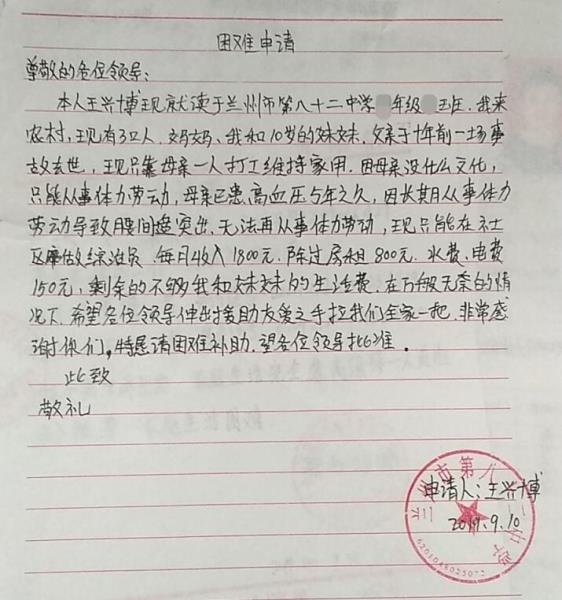 困难申请
尊敬的各位领导:
本人王兴博现就读于兰州市第八十二中学 年级 班. 我来
农村, 现有3口人. 妈妈、我和10岁的妹妹. 父亲于十年前一场事
故去世, 现只靠母亲一人打工维持家用. 因母亲没什么文化,
只能从事体力劳动, 母亲已患高血压5年之久, 因长期从事体力
劳动导致腰间盘突出. 无法再从事体力劳动, 现只能在社
区做保洁员 每月收入1800元. 除过房租800元. 水费、电费
150元, 剩余的不够我和妹妹的生活费. 在万般无奈的情
况下. 希望各位领导伸出援助友爱之手拉我们全家一把. 非常感
谢你们。特恳请困难补助. 望各位领导批准.
此致
敬礼
申请人: 王兴博
9.10
兰州市第八十二中学
6201048025072